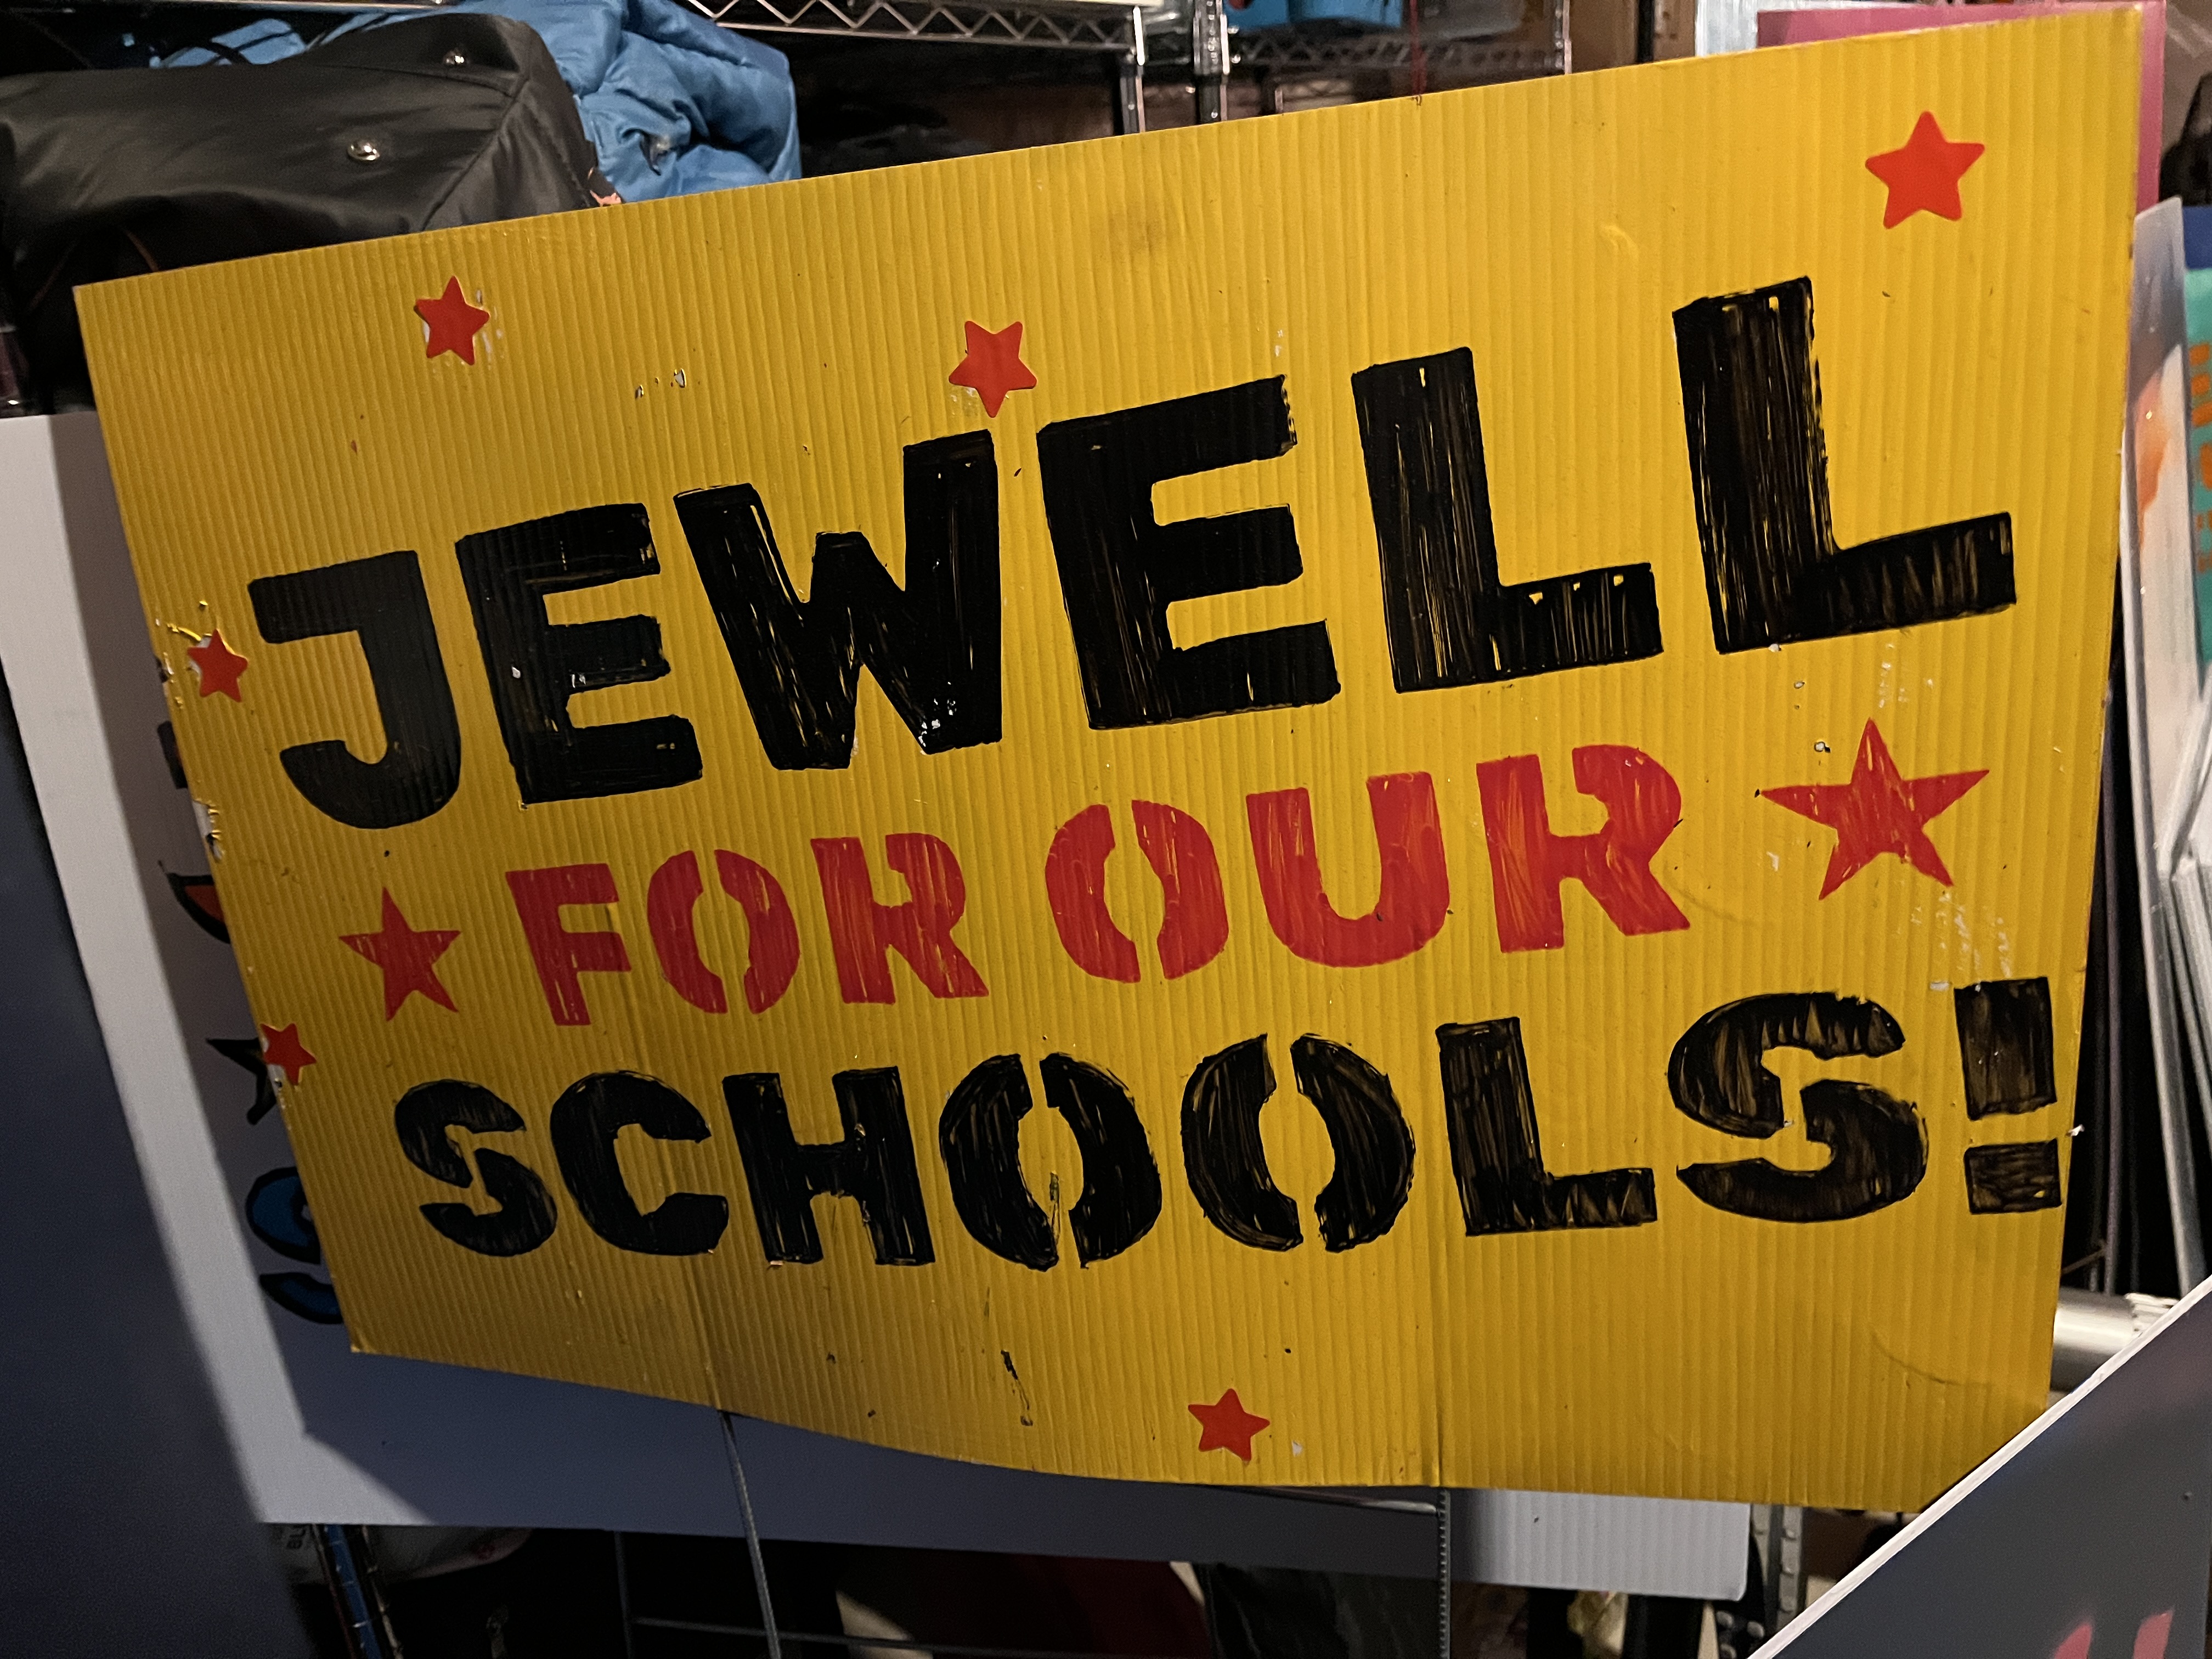 JEWELL
FOR OUR
SCHOOLS!